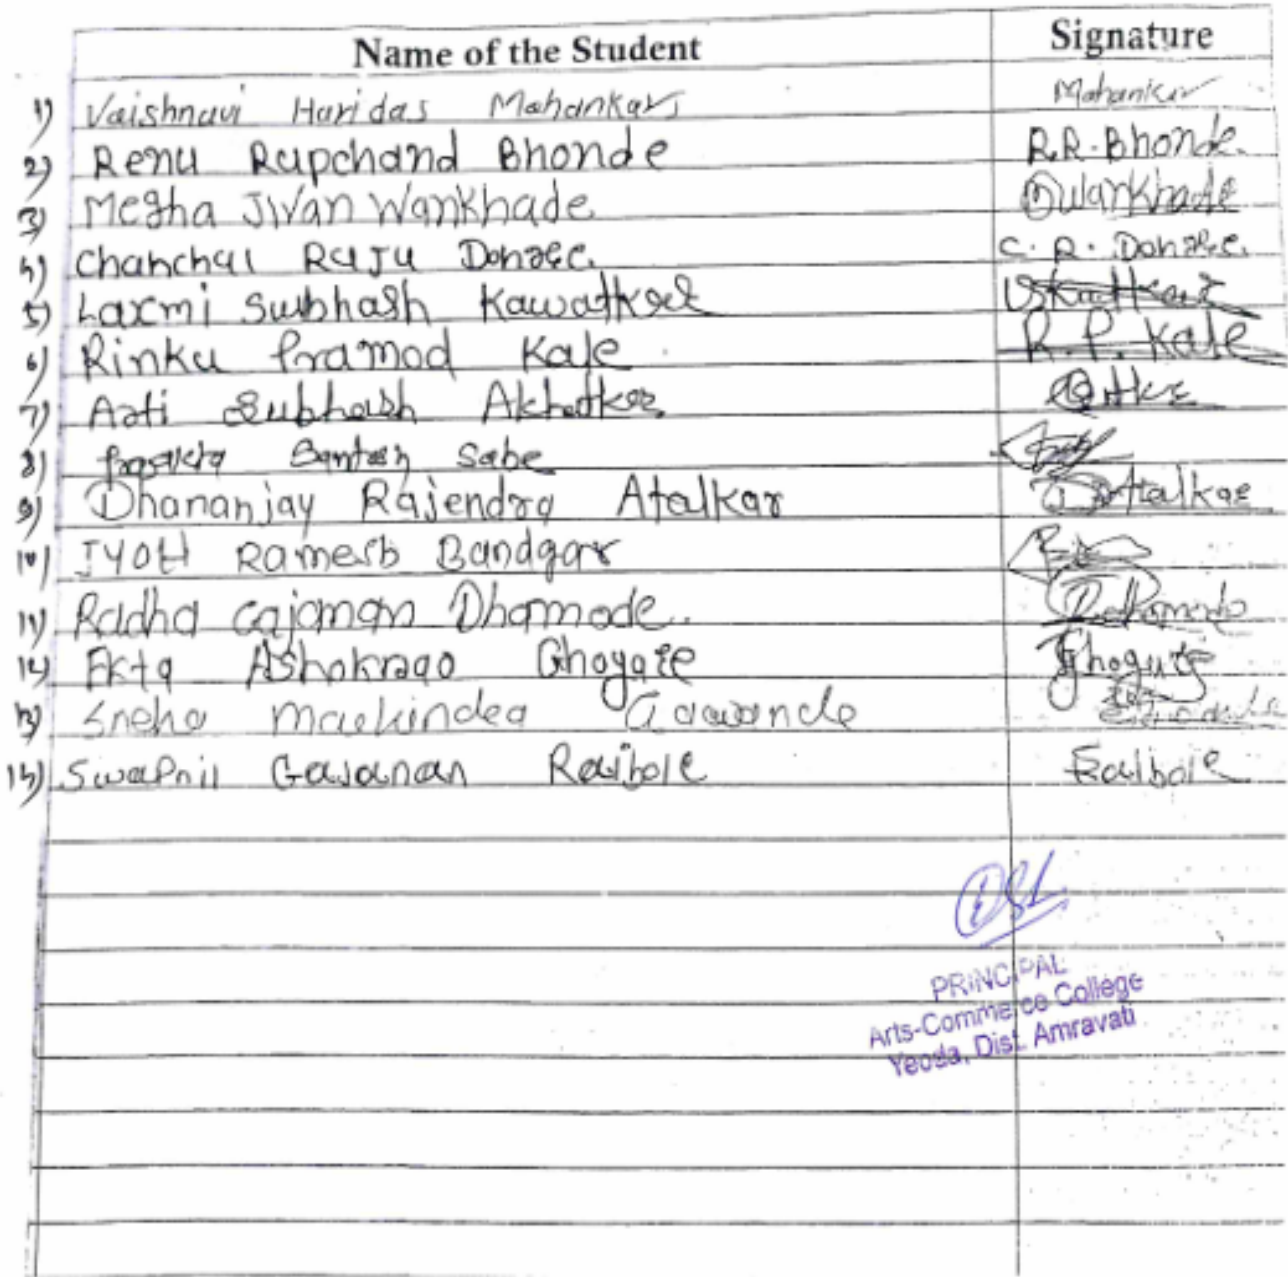 Name of the Student Signature
1) Vaishnavi Haridas Mahankar Mahankar
2) Renu Rupchand Bhonde R.R. Bhonde.
3) Megha Jivan Wankhade Wankhade
4) Chanchal Raju Dongre. C. R. Dongre.
5) Laxmi Subhash Kawatkar
6) Rinku Pramod Kale R. P. Kale
7) Aarti Subhash Akhatkar
8) Santosh Sabe
9) Dhananjay Rajendra Atalkar D Atalkar
10) Jyoti Ramesh Bandgar
11) Radha Gajanan Dhamode. Dhamode
12) Ekta Ashokrao Ghogare Ghogare
13) Sneha Gawande
14) Swapnil Gajanan Raibole Raibole
PRINCIPAL
Arts-Commerce College
Yeoda, Dist. Amravati